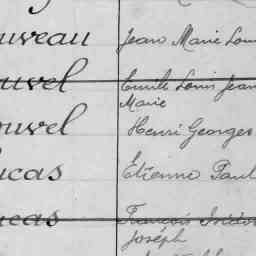 uveau Jean Marie Lou
uvel Emile Louis Jean
Marie
ouvel Henri Georges
ucas Etienne Paul
ucas François Isidor
Joseph